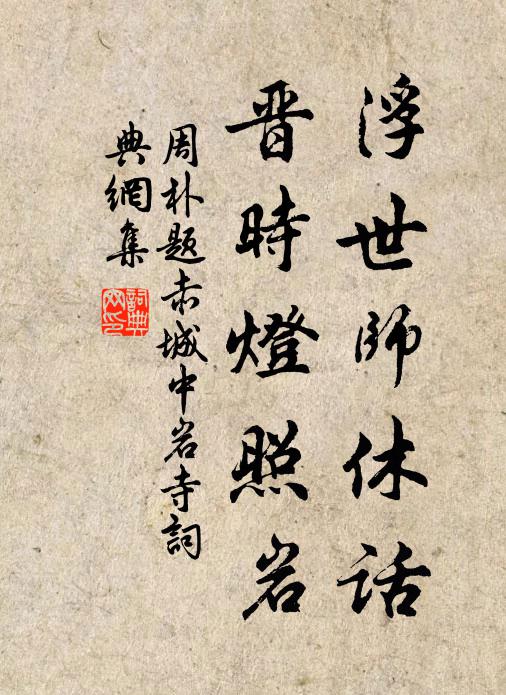 浮世師休話
晋時燈照岩
周朴题赤城中岩寺詞
典網集
詞典網印